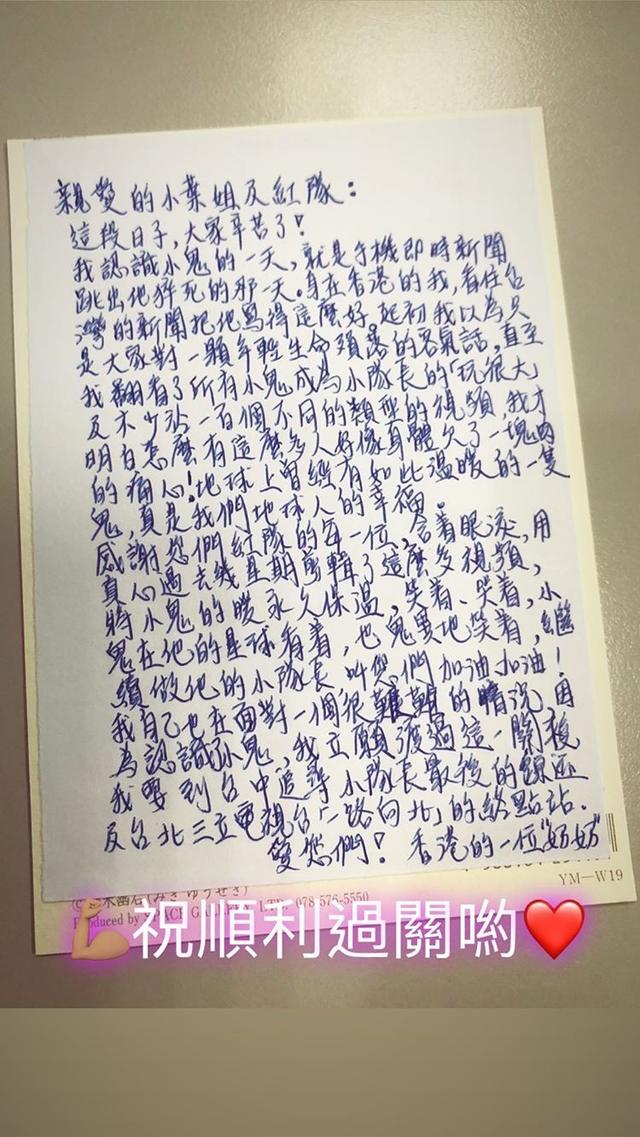 親愛的小葉姐及紅隊：
這段日子，大家辛苦了！
我認識小鬼的一天，就是手機即時新聞
跳出他猝死的那一天。身在香港的我，看住台
灣的新聞把他寫得這麼好。起初我以為只
是大家對一顆年輕生命殞落的客氣話，直至
我翻看了所有小鬼成為小隊長的「玩很大」
及不少站一百個不同的類型的視頻，我才
明白怎麼有這麼多人好像身體欠了一塊肉
的痛心！地球上曾經有如此溫暖的一隻
鬼，真是我們地球人的幸福。
感謝您們紅隊的每一位，含着眼淚，用
真心過去幾星期剪輯了這麼多視頻，
將小鬼的暖永久保溫，笑着、哭着，小
鬼在他的星球看着，也鬼要地笑着，繼
續做他的小隊長叫您們加油加油！
我自己也在面對一個很艱難的情況，因
為認識小鬼，我立願渡過這一關後
我要到台中追尋小隊長最後的蹤迹
及台北三立電視台「一路向北」的終點站．
愛您們！ 香港的一位"奶奶"
YM—W19
Produced by SPACE GALLERY LTD. 078-576-5550
💪祝順利過關喲❤️